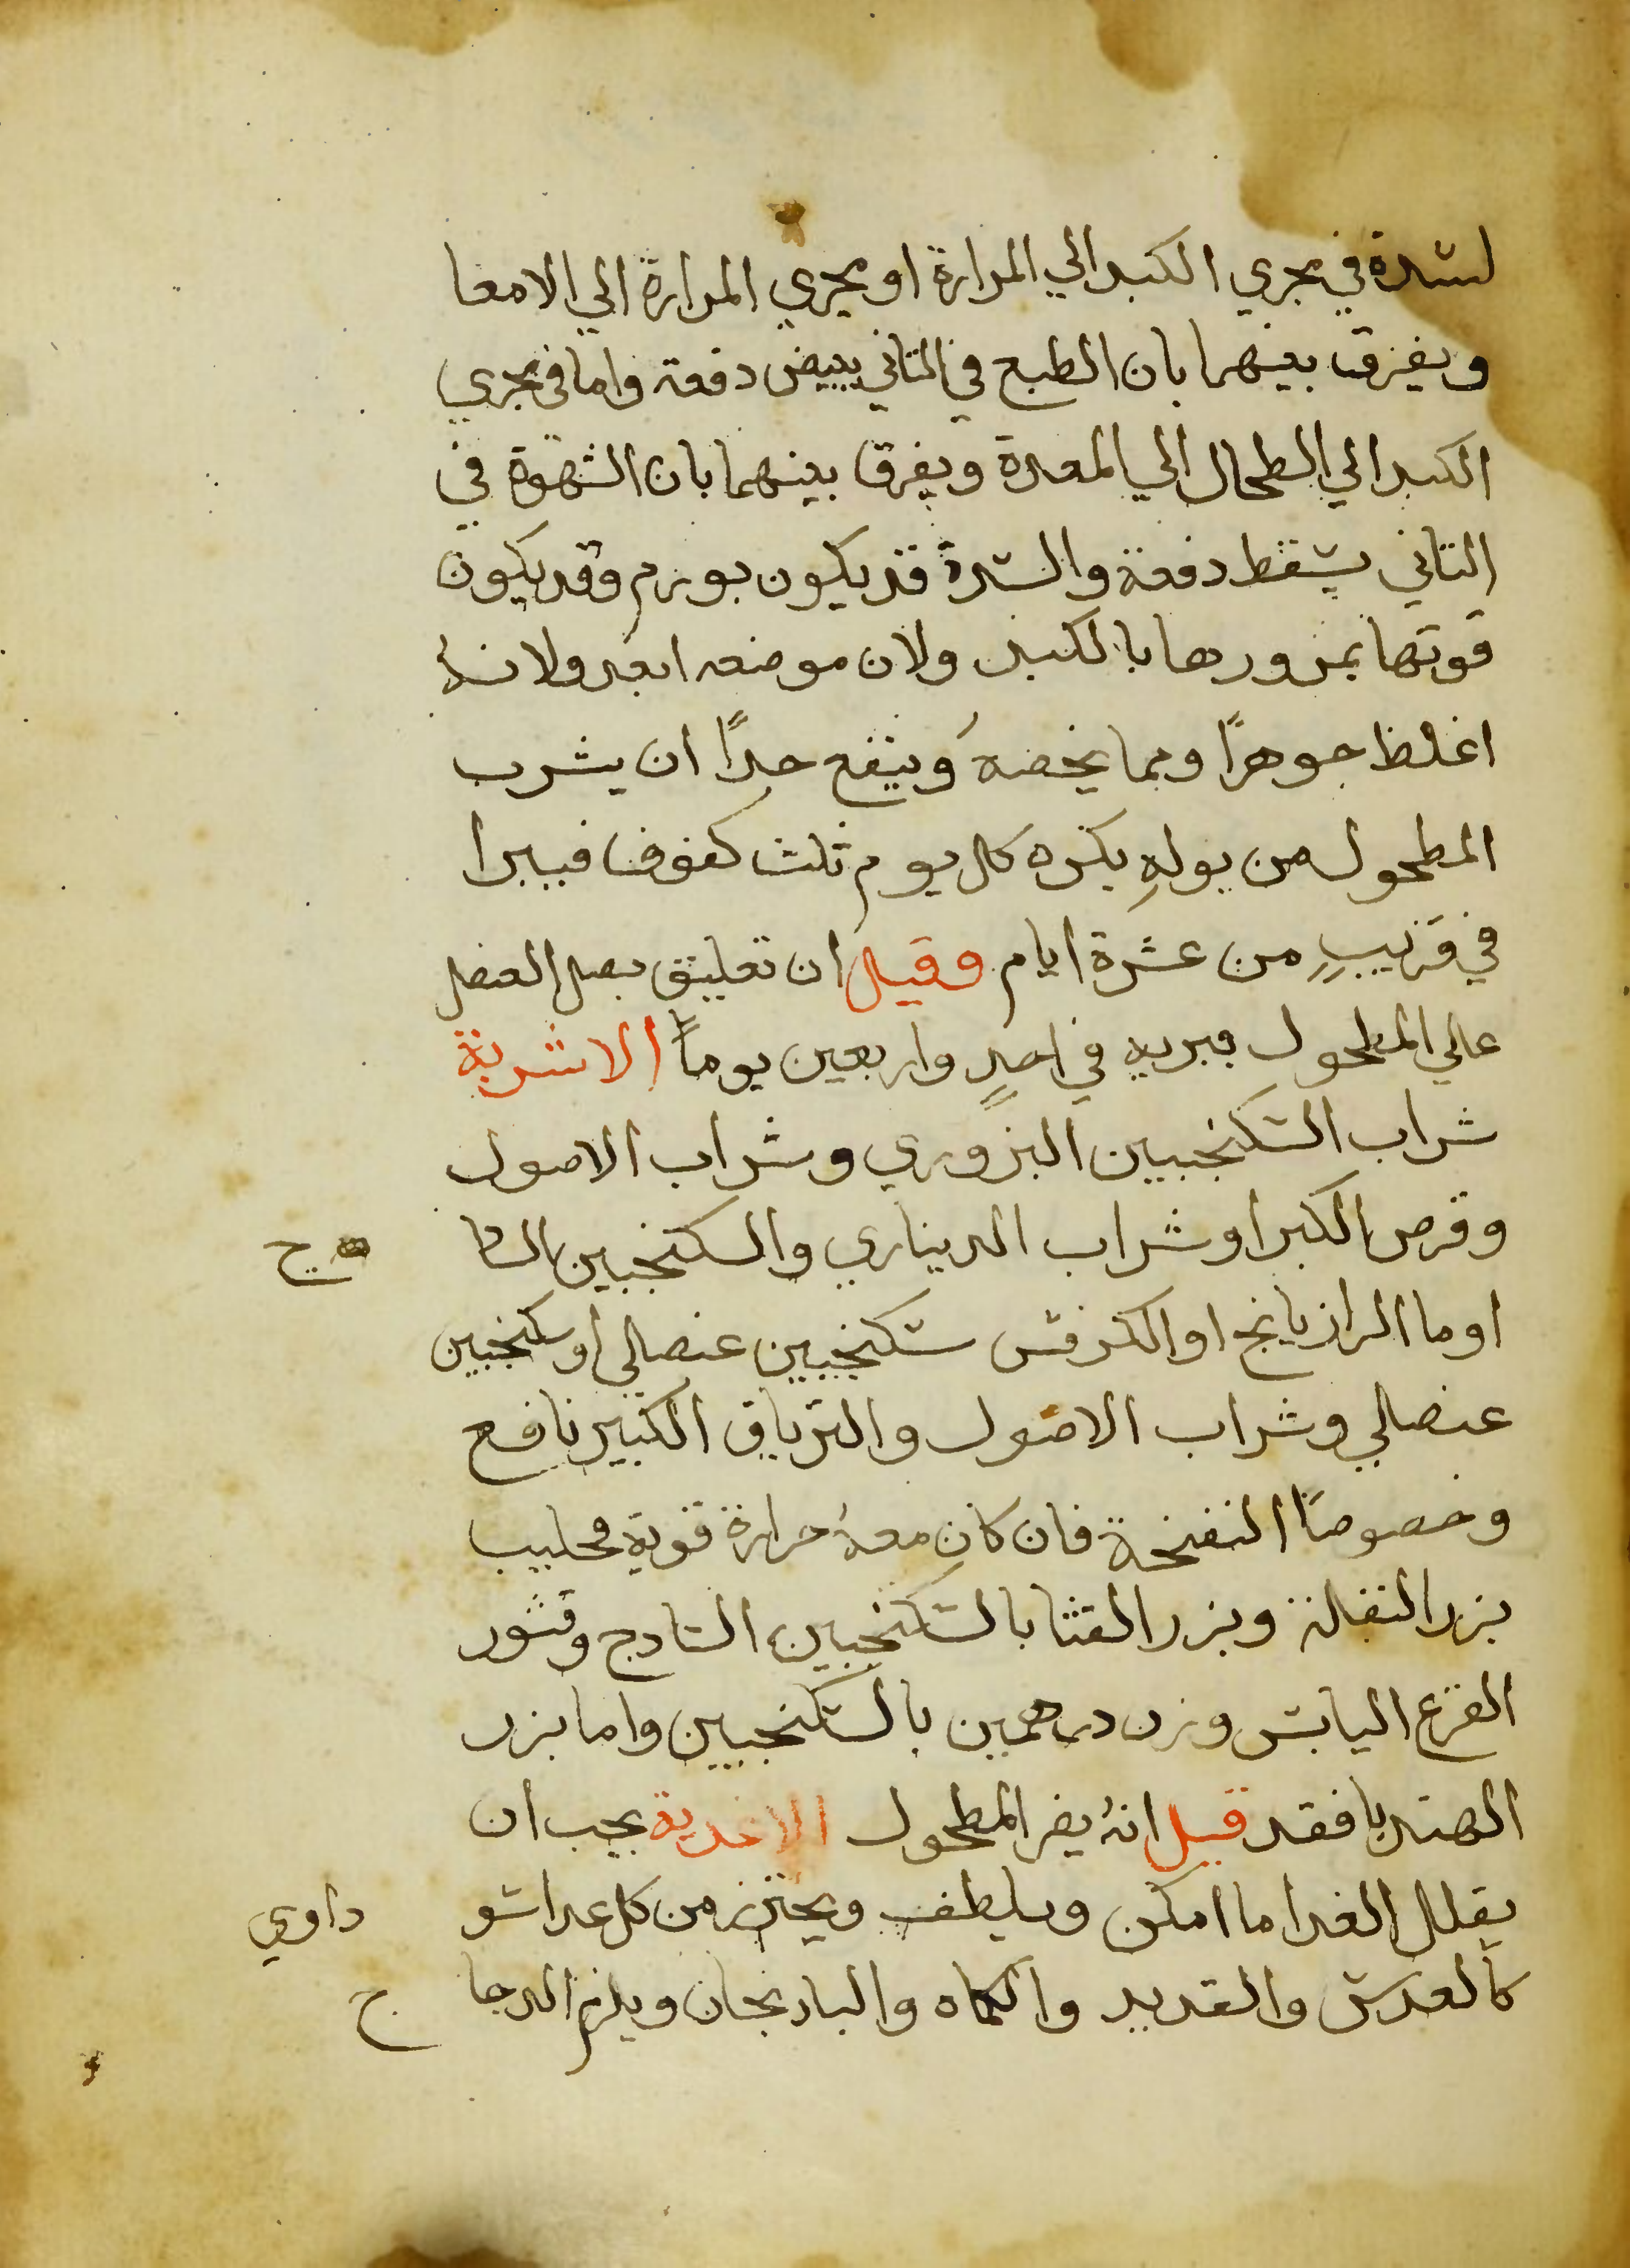 لسدة في مجري الكبد الي المرارة او مجري المرارة الي الامعا
ويفرق بينهما بان الطبع في الثاني يبيض دفعة واما في مجري
الكبد الي الطحال الي المعدة ويفرق بينهما بان الشهوة في
الثاني يسقط دفعة والسدة قد يكون بورم وقد يكون
قوتها بمرورها بالكبد ولان موضعه ابعد ولانهُ
اغلظ جوهرًا ومما يخصهُ وينفع جدًا ان يشرب
المطحول من بولهِ بكره كل يوم ثلث كفوف فيبرا
في قريبٍ من عشرة ايام وقيل ان تعليق بصل العنصل
علي المطحول يبريه في احدٍ واربعين يوماً الاشربة
شراب السكنجبين البزوري وشراب الاصول
وقرص الكبر او شراب الديناري والسكنجبين السا ج
او ما الرازيانج او الكرفس سكنجبين عنصلي او سكنجبين
عنصلي وشراب الاصول والترياق الكبير نافع
وخصوصاً النفخة فان كان معهُ حرارة قوية فحليب
بزر البقلة وبزر القثا بالسكنجبين السادج وقشور
القرع اليابس وزن درهمين بالسكنجبين واما بزر
الهندبا فقد قيل انهُ يضر المطحول الاغدية يجب ان
يقلل الغدا ما امكن ويلطف ويحترز من كل غدا سو داوي
كالعدس والقديد والكماه والبادنجان ويلزم الدجا ج